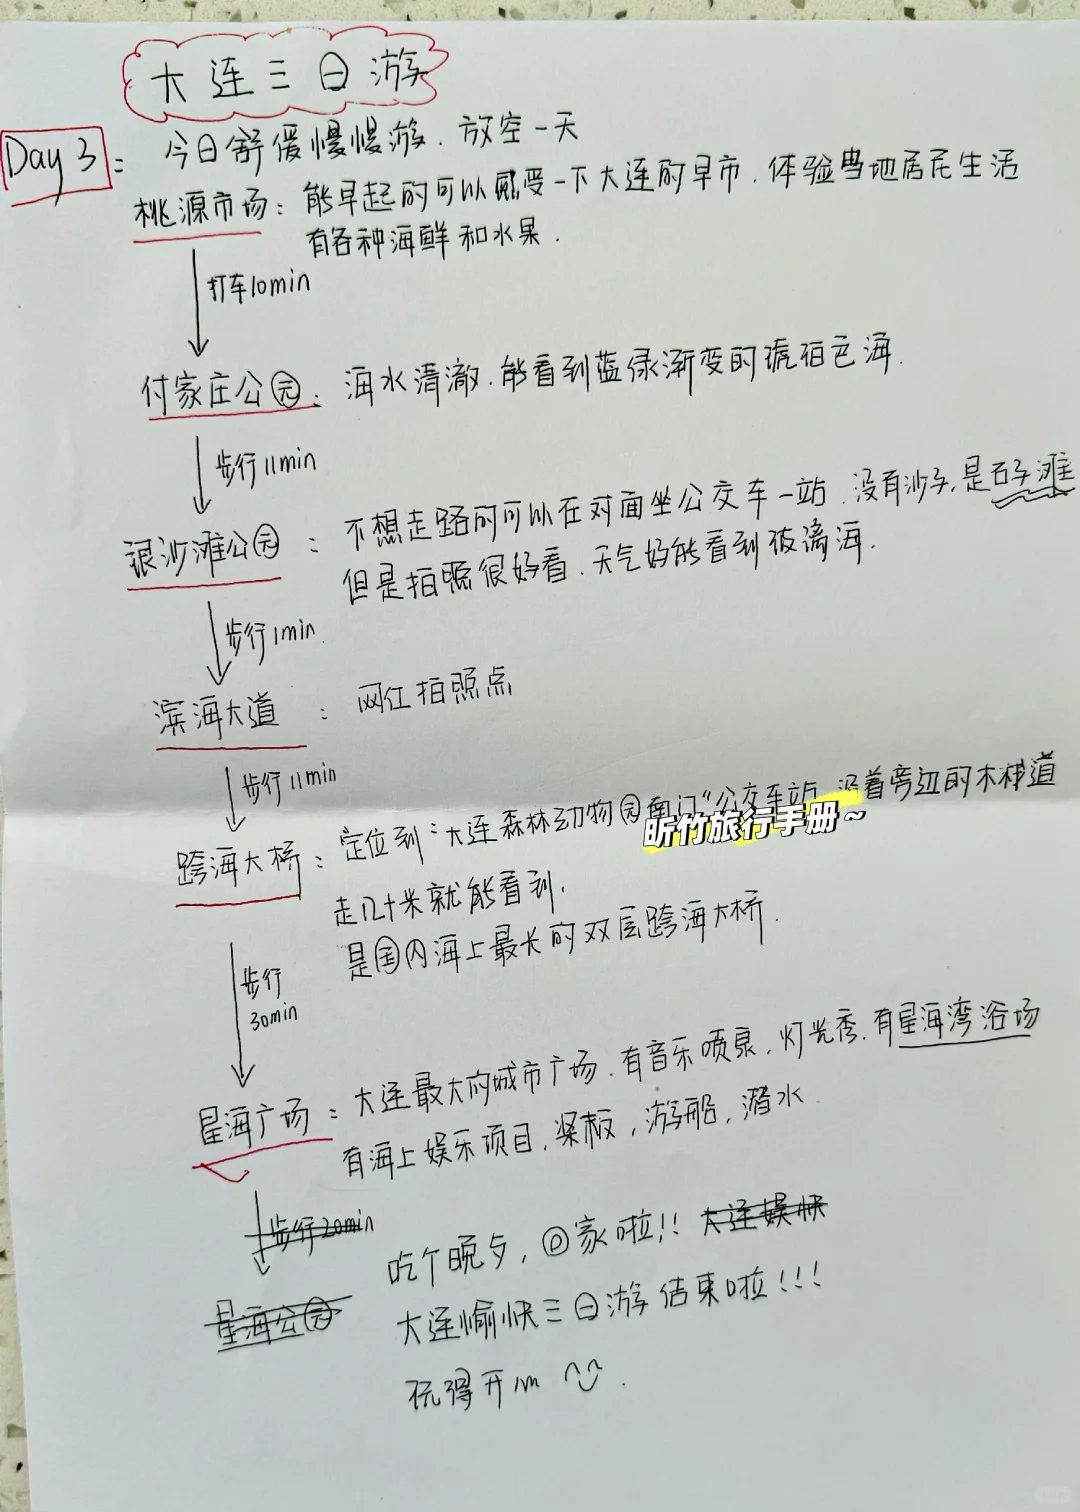 大连三日游
Day 3：今日舒缓慢慢游．放空一天
桃源市场：能早起的可以感受一下大连的早市．体验当地居民生活
有各种海鲜和水果．
打车10min
付家庄公园：海水清澈．能看到蓝绿渐变的琥珀色海．
步行11min
银沙滩公园：不想走路的可以在对面坐公交车一站．没有沙子，是石子滩
但是拍照很好看．天气好能看到玻璃海．
步行1min．
滨海大道：网红拍照点
步行11min
跨海大桥：定位到“大连森林动物园南门”公交车站 沿着旁边的木栈道
昕竹旅行手册~
走几十米就能看到．
是国内海上最长的双层跨海大桥．
步行
30min
星海广场：大连最大的城市广场．有音乐喷泉，灯光秀．有星海湾浴场
有海上娱乐项目，桨板，游船，潜水．
步行20min
吃个晚夕，回家啦!! 大连娱快
星海公园
大连愉快三日游结束啦!!!
玩得开心